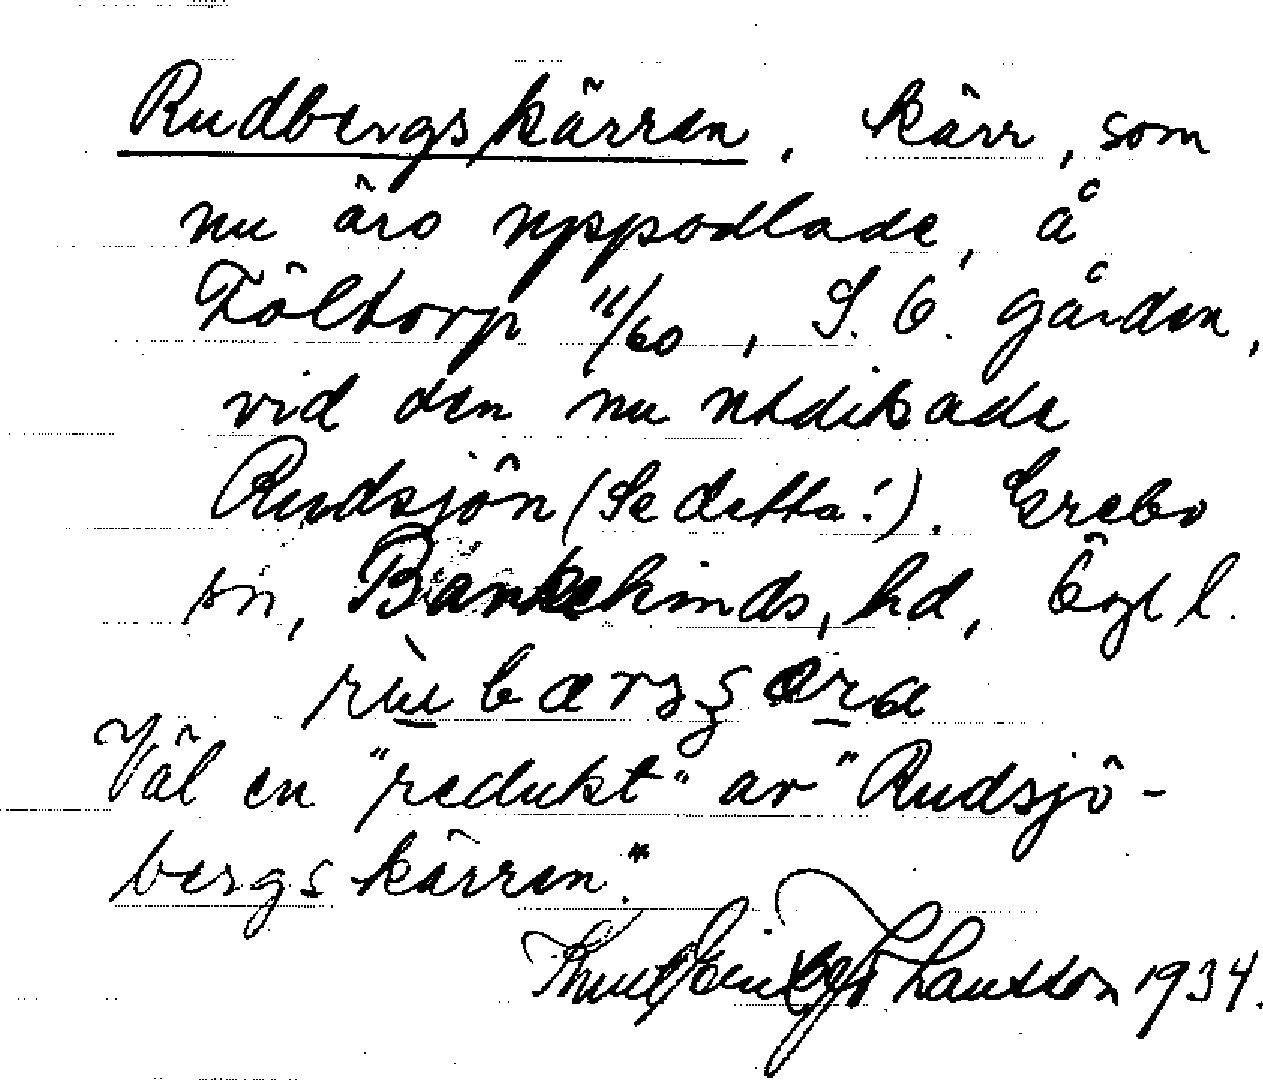 Rudbergskärren. kärr, som
nu äro uppodlade, å
Föltorp 11/60, S. Ö. gården,
vid den nu utdikade
Rudsjön (Se detta!). Grebo
sn, Bankekinds, hd, Ögl l.
Väl en "redukt" av "Rudsjö-
bergskärren".
Knut 1934.